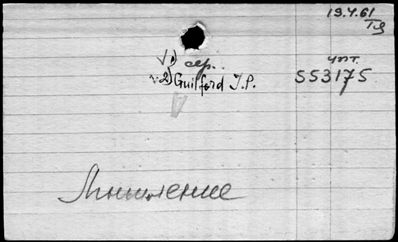 19.4.61
√1) сер.
√2) Guilford J.P.
чит.
553175
Мышление